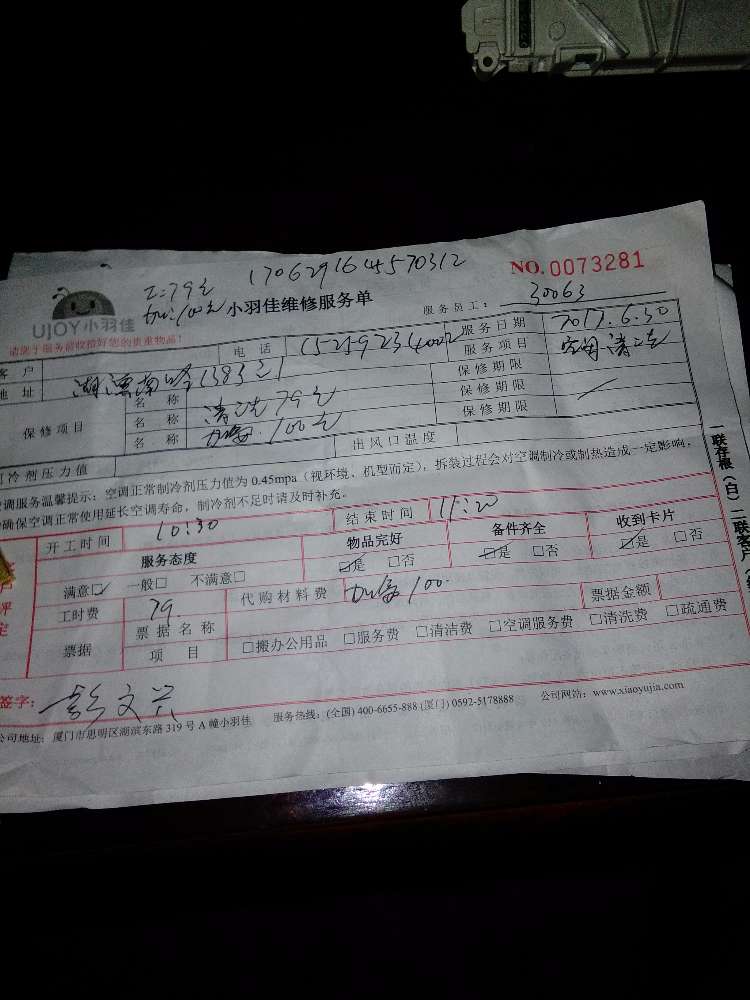 170629164570312
NO.0073281
工:79元
加氟:100元
小羽佳维修服务单
服务员工: 30063
UJOY小羽佳
请您于服务前收拾好您的贵重物品!
客户 电话 15259234002 服务日期 2017.6.30
地址 湖滨南路1383 服务项目 空调清洗
保修项目 名称 清洗79元 保修期限
名称 加氟.100元 保修期限
名称 保修期限
制冷剂压力值 出风口温度
空调服务温馨提示:空调正常制冷剂压力值为 0.45mpa(视环境、机型而定),拆装过程会对空调制冷或制热造成一定影响,
为确保空调正常使用延长空调寿命,制冷剂不足时请及时补充。
开工时间 10:30 结束时间 11:20
服务态度 物品完好 备件齐全 收到卡片
满意□ 一般□ 不满意□ □是 □否 □是 □否 □是 □否
工时费 79. 代购材料费 加氟100. 票据金额
票据 票据名称
项目 □搬办公用品 □服务费 □清洁费 □空调服务费 □清洗费 □疏通费
签字: 彭文兴
公司地址:厦门市思明区湖滨东路 319 号 A 幢小羽佳 服务热线:(全国) 400-6655-888 (厦门) 0592-5178888 公司网站:www.xiaoyujia.com
一联存根(白)二联客户